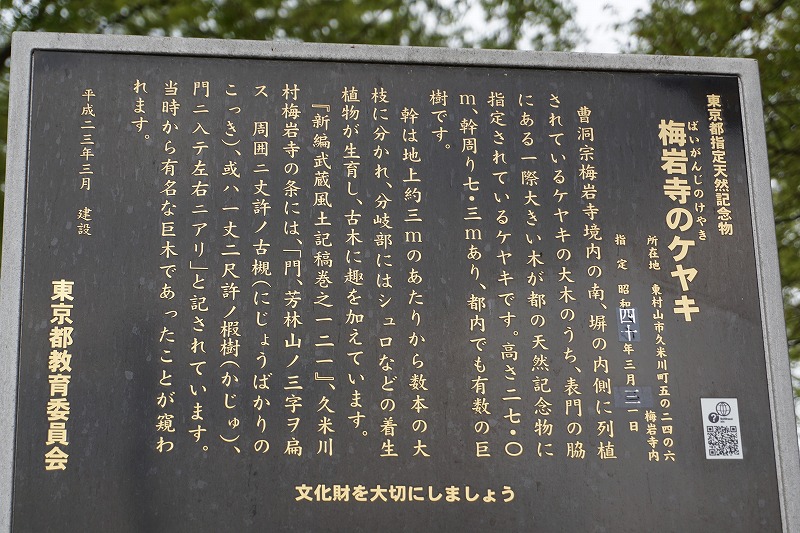 東京都指定天然記念物
ばいがんじのけやき
梅岩寺のケヤキ
所在地 東村山市久米川町五の二四の六
梅岩寺内
指定 昭和四十年三月三一日
曹洞宗梅岩寺境内の南、塀の内側に列植
されているケヤキの大木のうち、表門の脇
にある一際大きい木が都の天然記念物に
指定されているケヤキです。高さ二七・〇
m、幹周り七・三mあり、都内でも有数の巨
樹です。
幹は地上約三mのあたりから数本の大
枝に分かれ、分岐部にはシュロなどの着生
植物が生育し、古木に趣を加えています。
『新編武蔵風土記稿巻之一二一』、久米川
村梅岩寺の条には、「門、芳林山ノ三字ヲ扁
ス 周囲二丈許ノ古槻(にじょうばかりの
こっき)、或ハ一丈二尺許ノ椵樹(かじゅ)、
門ニ入テ左右ニアリ」と記されています。
当時から有名な巨木であったことが窺わ
れます。
平成二三年三月 建設
東京都教育委員会
文化財を大切にしましょう